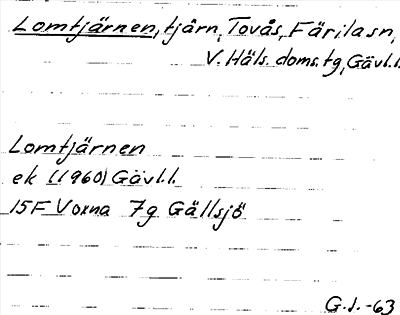 Lomtjärnen, tjärn, Tovås, Färila sn,
V. Häls. doms. tg, Gävl.l.
Lomtjärnen
ek (1960) Gävl.l.
15F Voxna 7g Gällsjö
G.J.-63